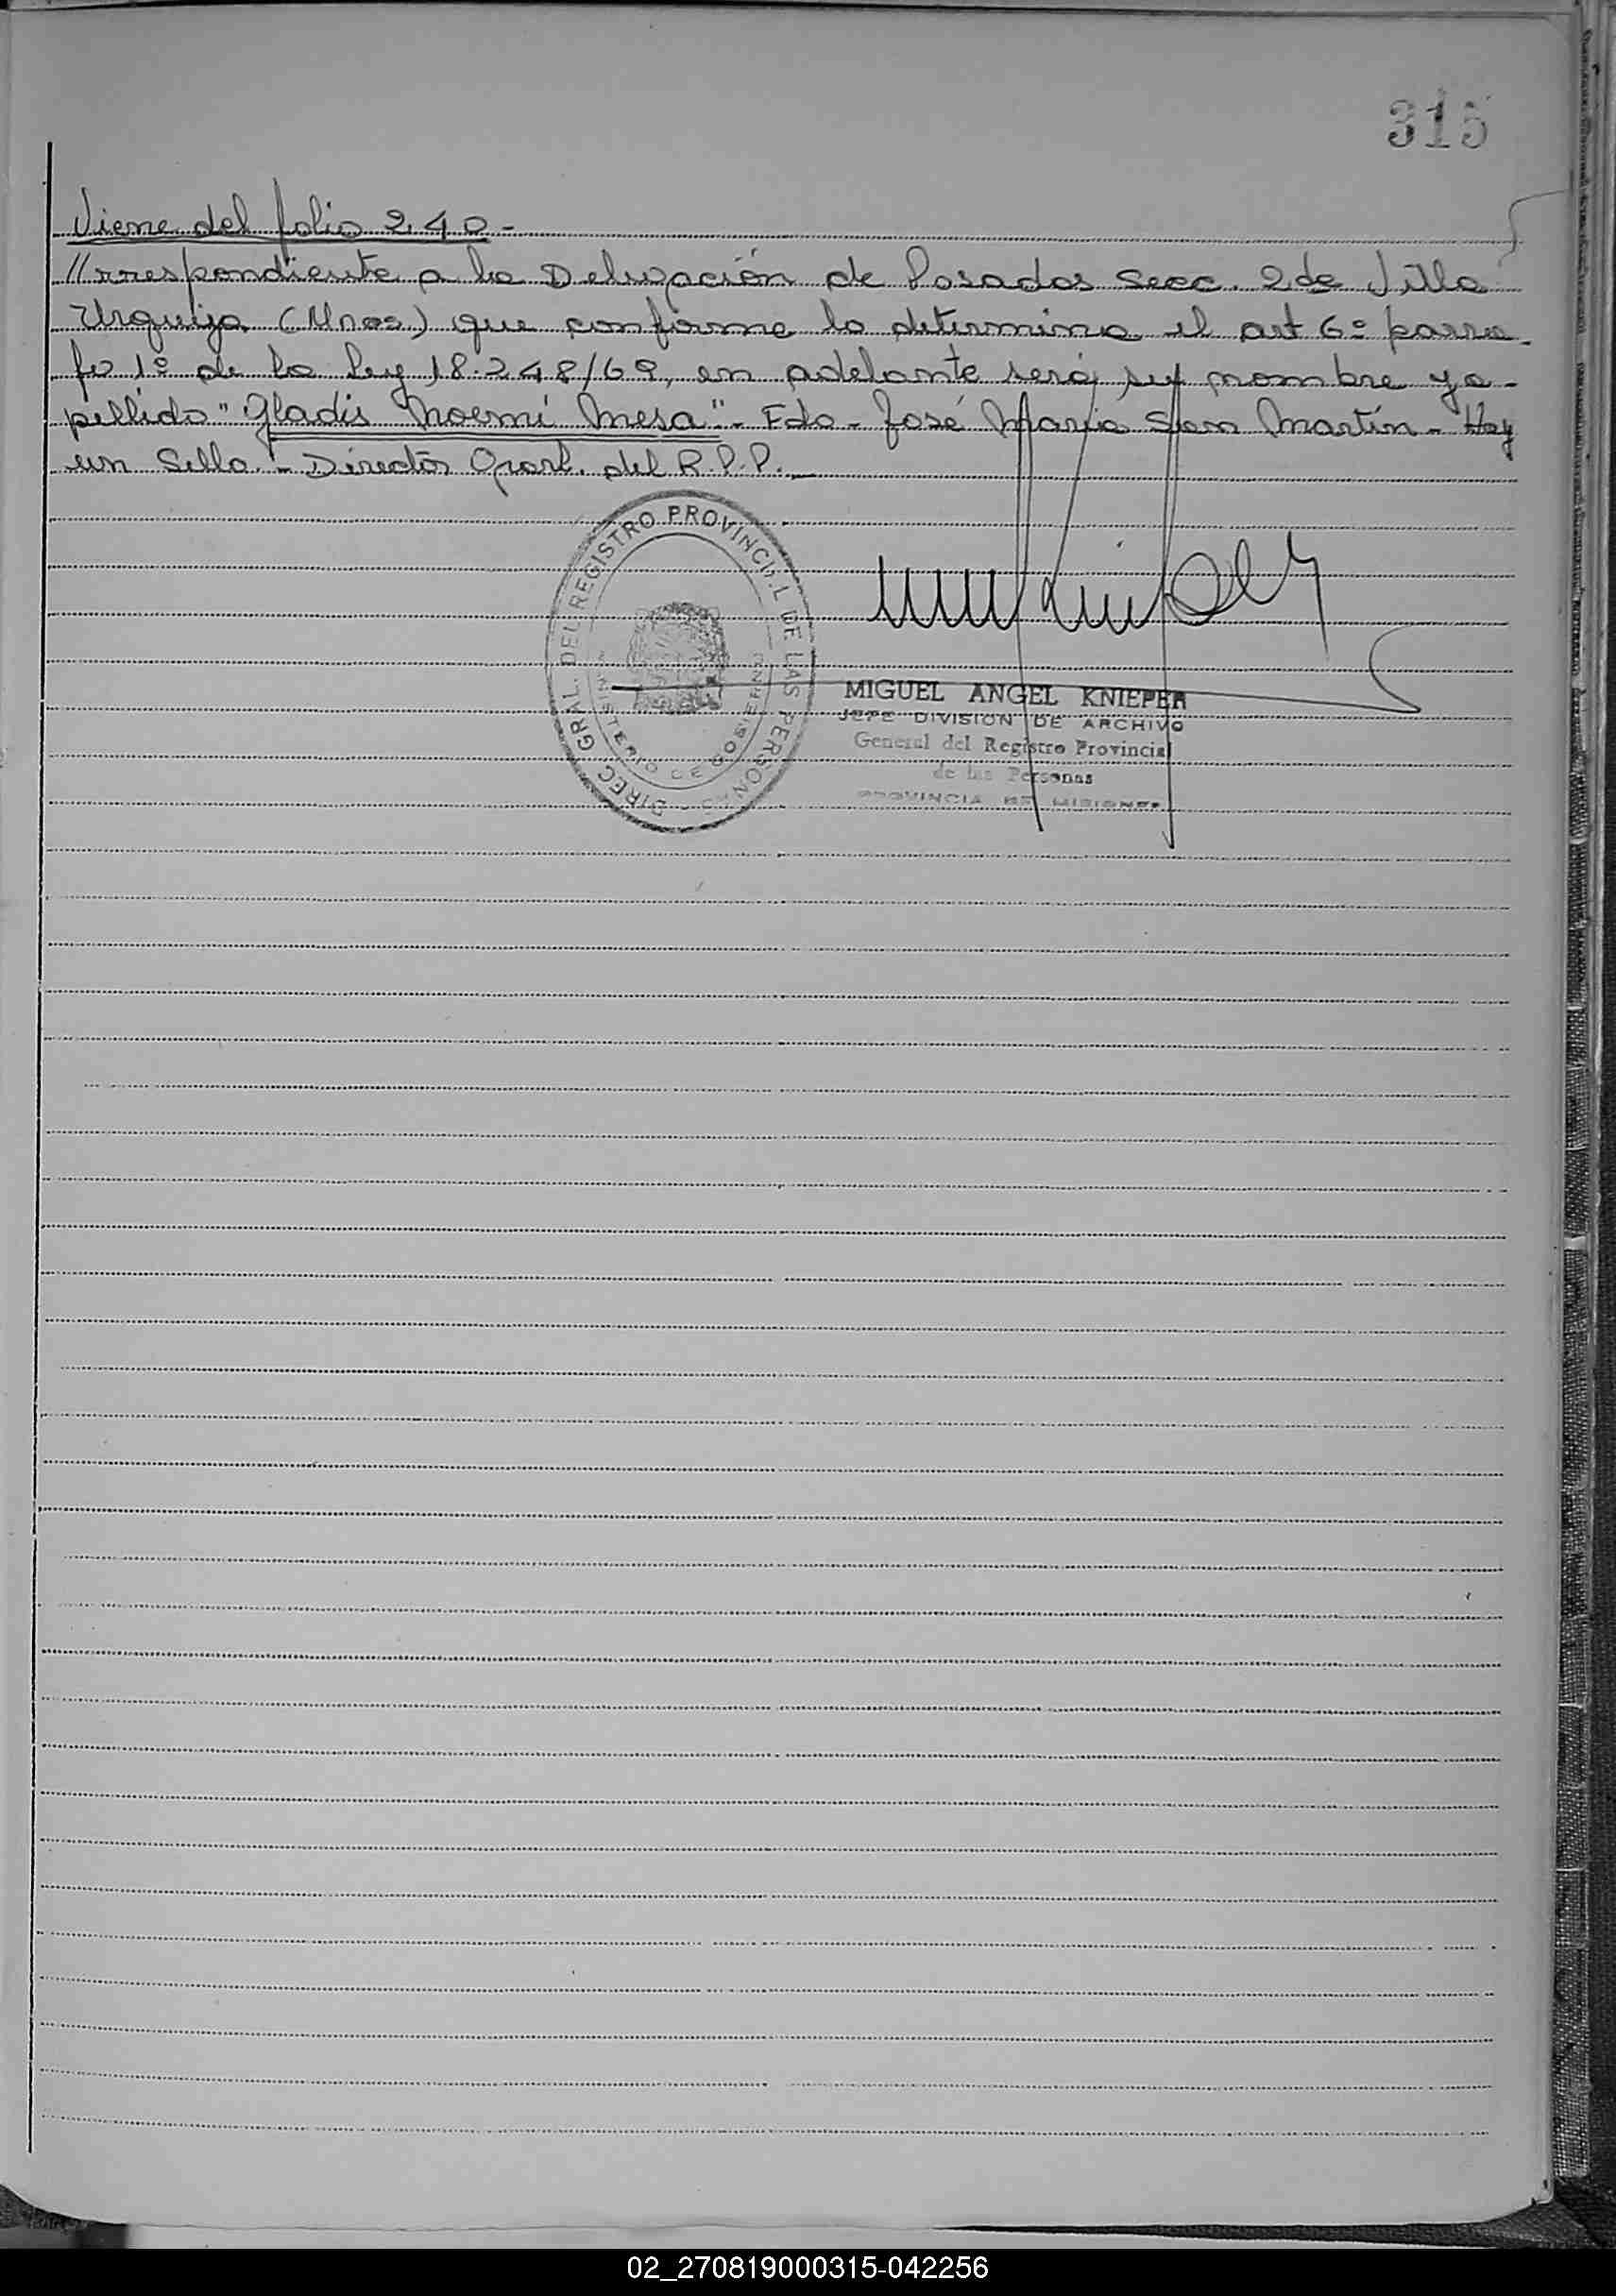 315
Viene del folio 240-
//rrespondiente a la Delegación de Posadas Secc. 2da Villa
Urquiza (Mnes) que conforme lo determina el art 6º parra-
fo 1º de la Ley 18.248/69, en adelante será su nombre y a-
pellido "Gladis Noemí Mesa".- Fdo- José María San Martín- Hay
un Sello.- Director Gral. del R.P.P.-
DIREC. GRAL. DEL REGISTRO PROVINCIAL DE LAS PERSONAS
MINISTERIO DE GOBIERNO
MIGUEL ANGEL KNIEPER
JEFE DIVISION DE ARCHIVO
General del Registro Provincial
de las Personas
PROVINCIA DE MISIONES
02_270819000315-042256